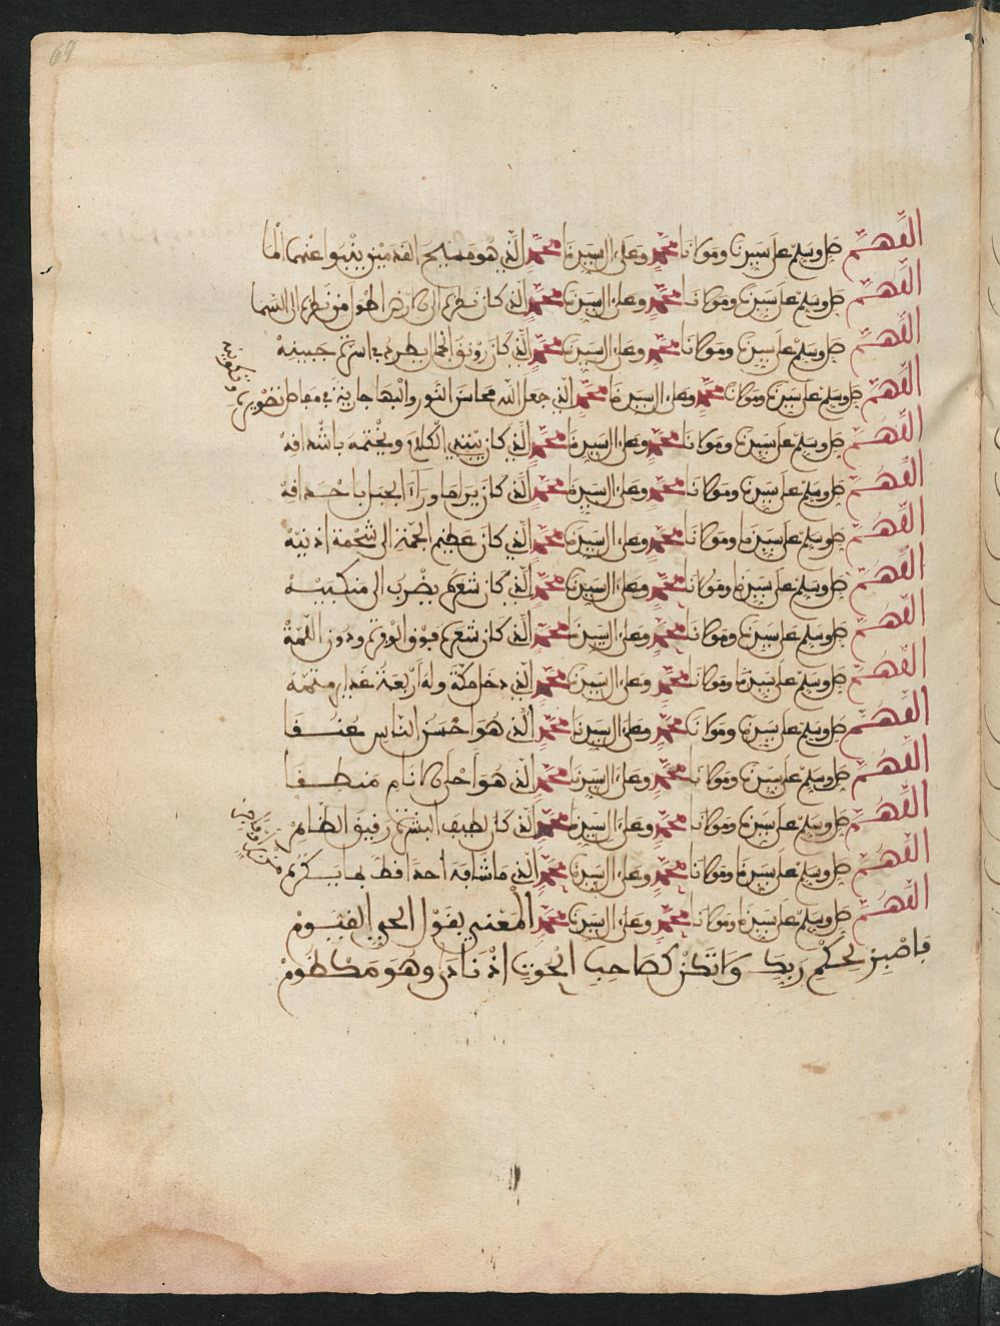 69
اللهم صل وسلم على سيدنا ومولانا محمد وعلى ال سيدنا محمد الذي هو مسيح القدمين ينبوا عنهما الما
اللهم صل وسلم على سيدنا ومولانا محمد وعلى ال سيدنا محمد الذي كان نظره الى الارض اطول من نظره الى السما
اللهم صل وسلم على سيدنا ومولانا محمد وعلى ال سيدنا محمد الذي كان رونق الجمال يطرد في اسرة جبينه
اللهم صل وسلم على سيدنا ومولانا محمد وعلى ال سيدنا محمد الذي جعل الله محاسن النور والبها جارية في مفاصل تصويره وتكوينه
اللهم صل وسلم على سيدنا ومولانا محمد وعلى ال سيدنا محمد الذي كان يبتدي الكلام ويختمه باشداقه
اللهم صل وسلم على سيدنا ومولانا محمد وعلى ال سيدنا محمد الذي كان يرا ما وراء الجبل باحداقه
اللهم صل وسلم على سيدنا ومولانا محمد وعلى ال سيدنا محمد الذي كان عظيم الجمة الى شحمة اذنيه
اللهم صل وسلم على سيدنا ومولانا محمد وعلى ال سيدنا محمد الذي كان شعره يضرب الى منكبيه
اللهم صل وسلم على سيدنا ومولانا محمد وعلى ال سيدنا محمد الذي كان شعره فوق الوفرة ودون اللمة
اللهم صل وسلم على سيدنا ومولانا محمد وعلى ال سيدنا محمد الذي دخل مكة وله اربعة غداير متمة
اللهم صل وسلم على سيدنا ومولانا محمد وعلى ال سيدنا محمد الذي هو احسن الناس عنقا
اللهم صل وسلم على سيدنا ومولانا محمد وعلى ال سيدنا محمد الذي هو احلى الانام منطقا
اللهم صل وسلم على سيدنا ومولانا محمد وعلى ال سيدنا محمد الذي كان لطيف البشرة رقيق الظاهر
اللهم صل وسلم على سيدنا ومولانا محمد وعلى ال سيدنا محمد الذي ما شافه احدا قط بما يكره
اللهم صل وسلم على سيدنا ومولانا محمد وعلى ال سيدنا محمد المعنى بقول الحي القيوم
فاصبر لحكم ربك ولا تكن كصاحب الحوت اذ نادى وهو مكظوم